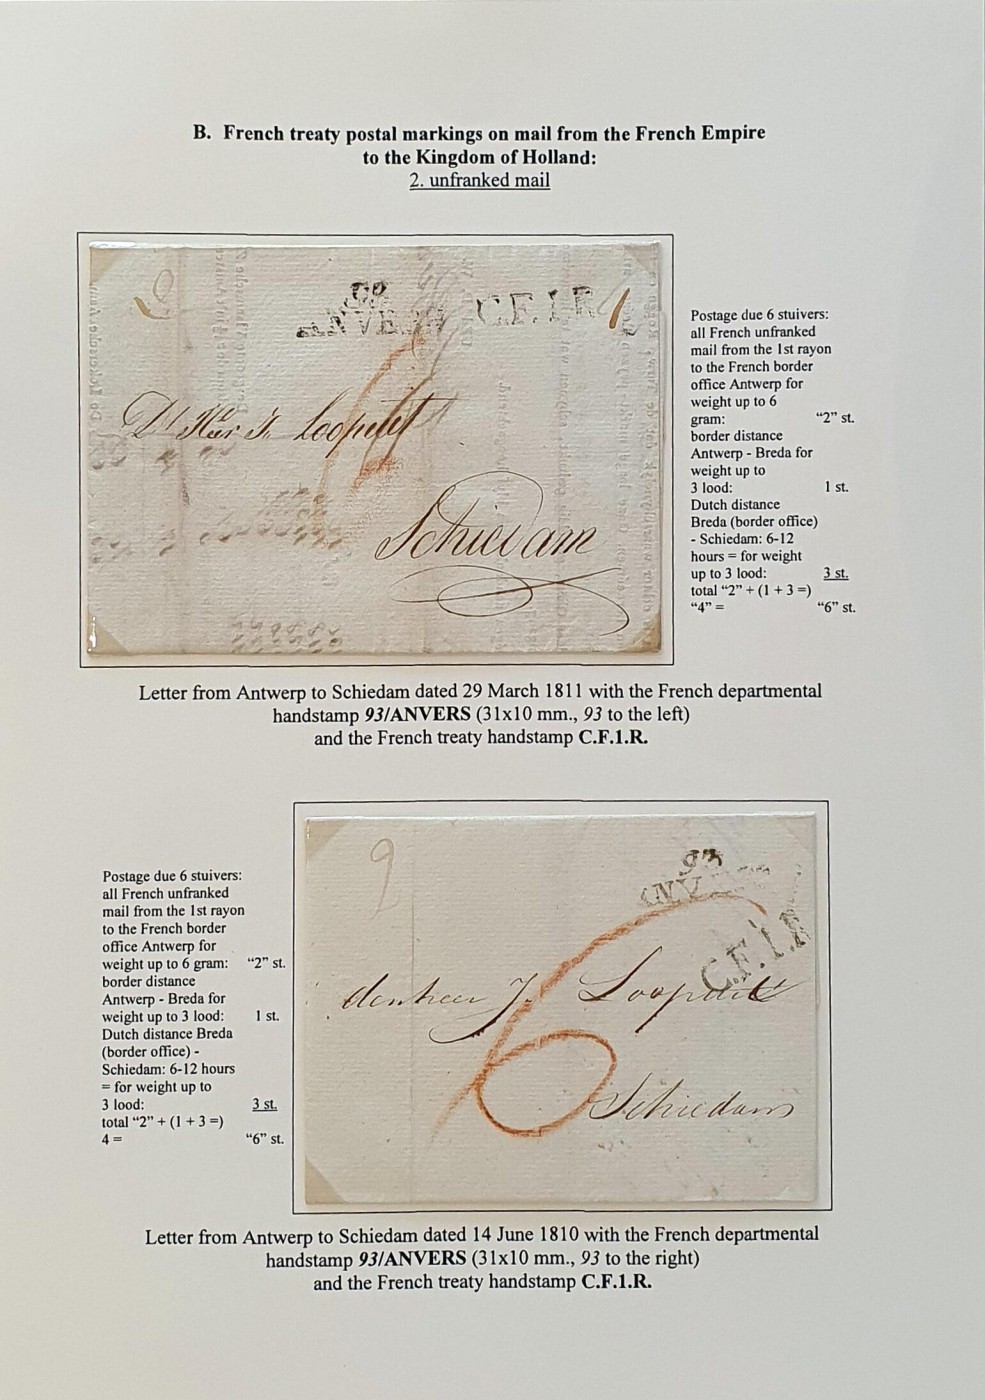 B. French treaty postal markings on mail from the French Empire
to the Kingdom of Holland:
2. unfranked mail
93
ANVERS
C.F.1.R
Loopuyt
Schiedam
Postage due 6 stuivers:
all French unfranked
mail from the 1st rayon
to the French border
office Antwerp for
weight up to 6
gram: “2” st.
border distance
Antwerp - Breda for
weight up to
3 lood: 1 st.
Dutch distance
Breda (border office)
- Schiedam: 6-12
hours = for weight
up to 3 lood: 3 st.
total “2” + (1 + 3 =)
“4” = “6” st.
Letter from Antwerp to Schiedam dated 29 March 1811 with the French departmental
handstamp 93/ANVERS (31x10 mm., 93 to the left)
and the French treaty handstamp C.F.1.R.
Postage due 6 stuivers:
all French unfranked
mail from the 1st rayon
to the French border
office Antwerp for
weight up to 6 gram: “2” st.
border distance
Antwerp - Breda for
weight up to 3 lood: 1 st.
Dutch distance Breda
(border office) -
Schiedam: 6-12 hours
= for weight up to
3 lood: 3 st.
total “2” + (1 + 3 =)
4 = “6” st.
9
93
ANV
C.F.1.R
6
denheer J. Loopuit
Schiedam
Letter from Antwerp to Schiedam dated 14 June 1810 with the French departmental
handstamp 93/ANVERS (31x10 mm., 93 to the right)
and the French treaty handstamp C.F.1.R.